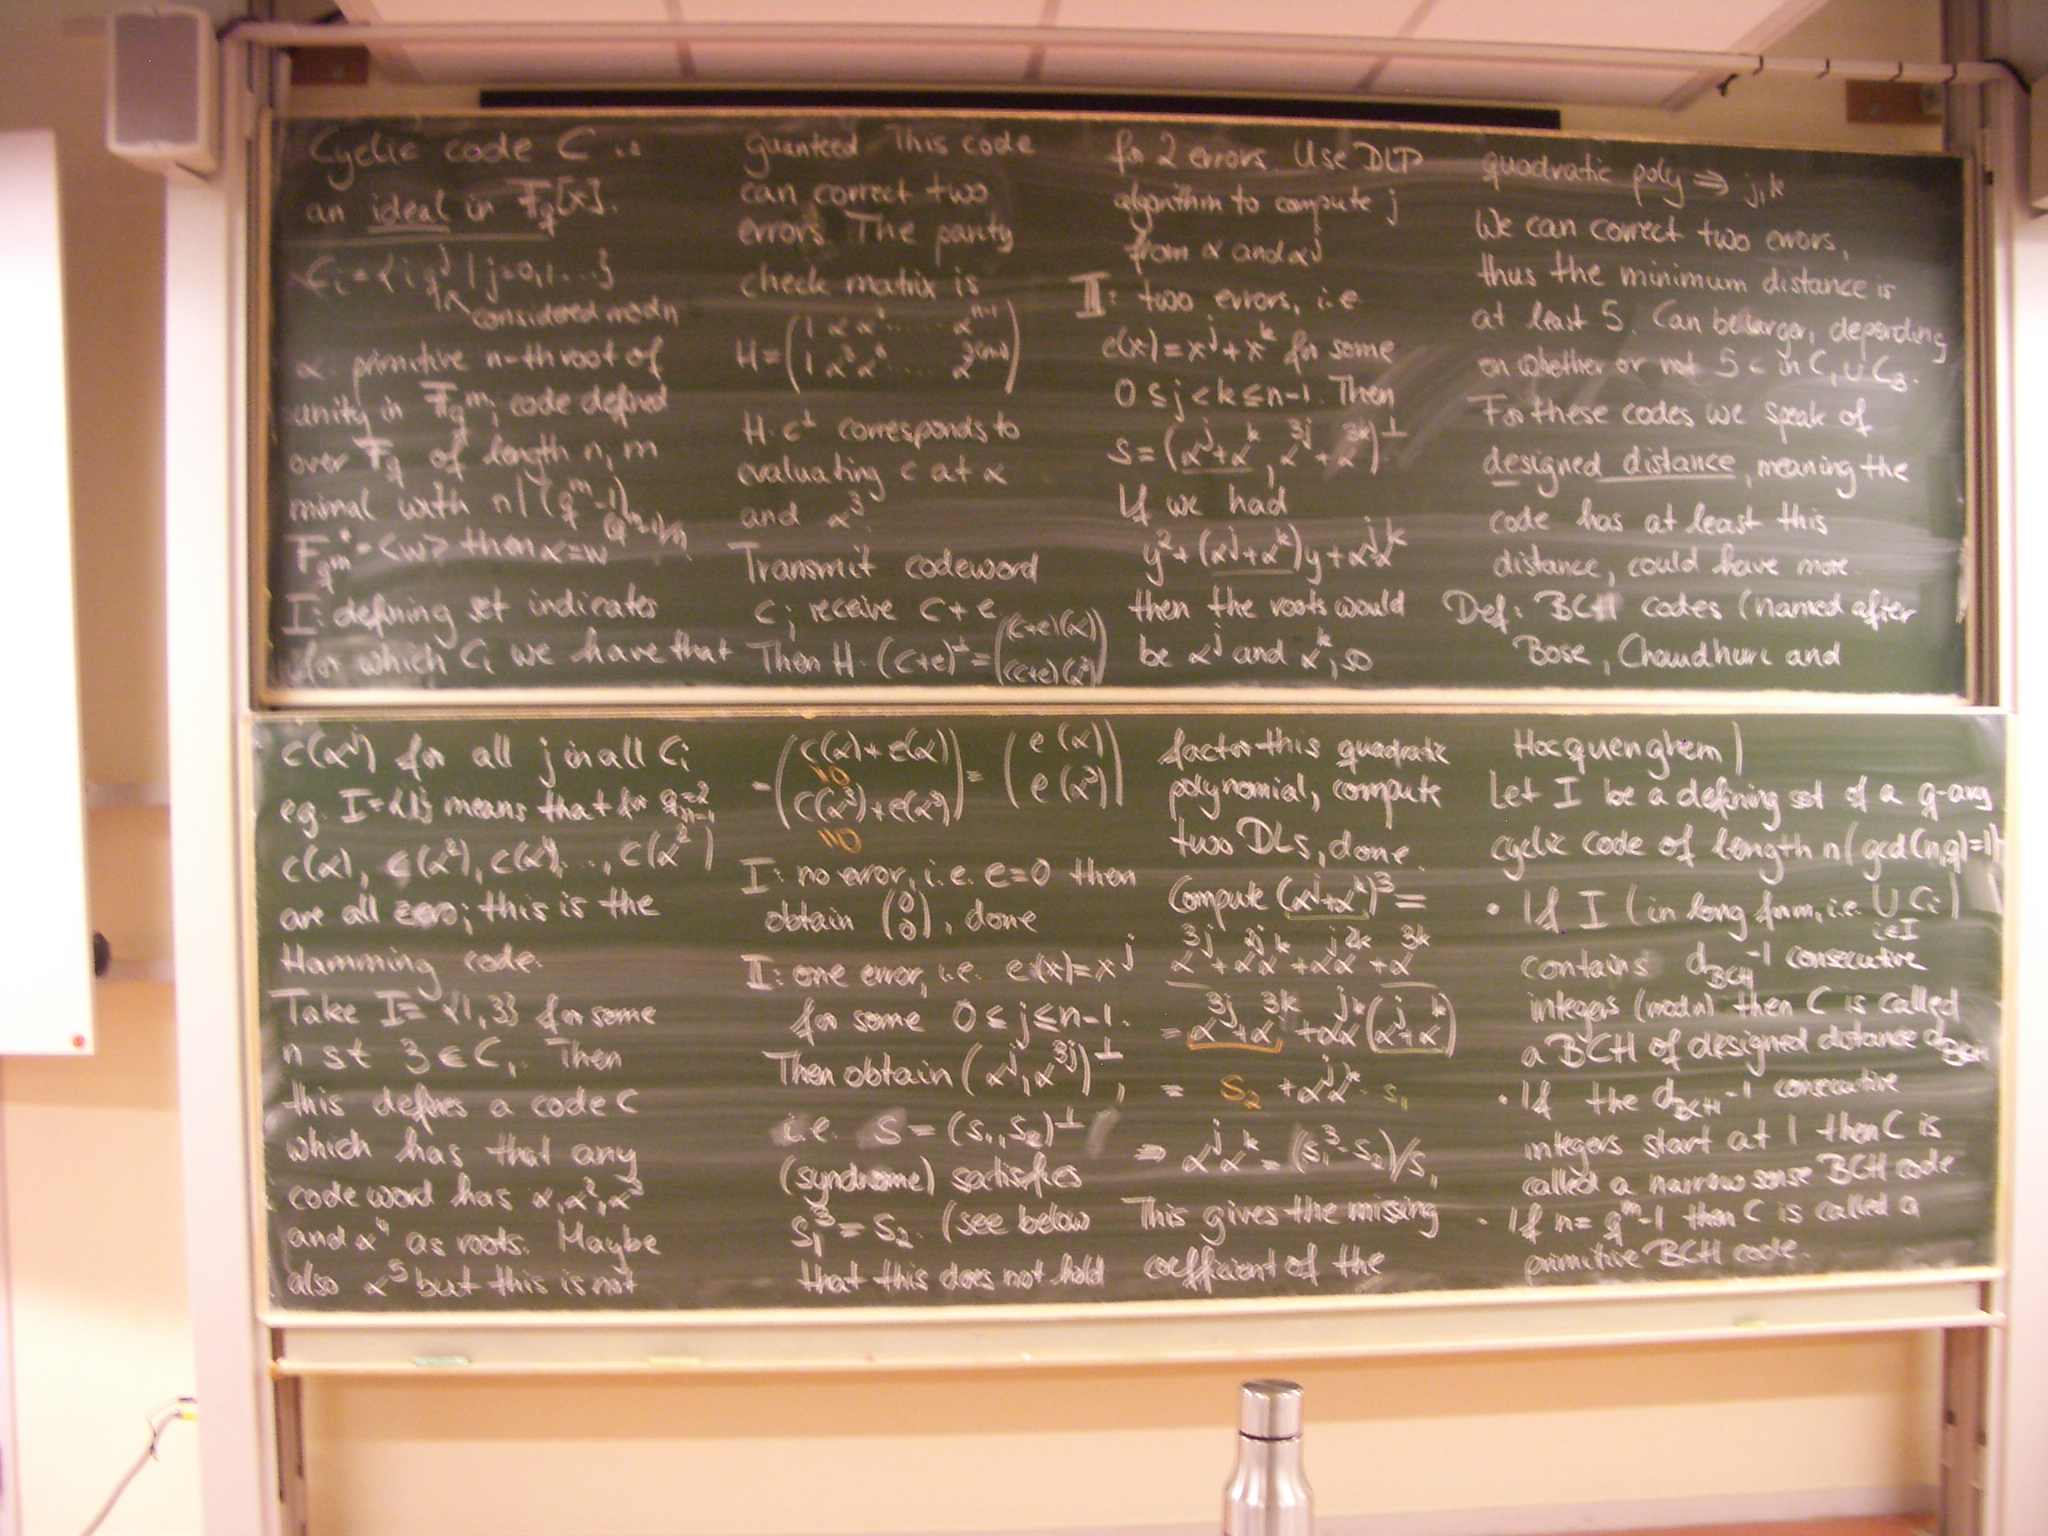 Cyclic code C is
an ideal in F_q[x].
C_i = {i q^j | j=0,1...}
considered mod n
α: primitive n-th root of
unity in F_q^m; code defined
over F_q of length n; m
mimal with n | (q^m-1)
F_q^m^* = <w> then α=w^(q^m-1)/n
I: defining set indicates
for which C_i we have that
c(α^j) for all j in all C_i
eg. I={1} means that for q=2
c(α), c(α^2), c(α^4), ..., c(α^2^n-1)
are all zero; this is the
Hamming code.
Take I={1,3} for some
n st 3 ∈ C_1. Then
this defines a code C
which has that any
code word has α, α^2, α^3
and α^4 as roots. Maybe
also α^5 but this is not
guanteed This code
can correct two
errors. The parity
check matrix is
H = (1 α α^2 ..... α^n-1
1 α^3 α^6 ..... α^3(n-1))
H·c^⊥ corresponds to
evaluating c at α
and α^3
Transmit codeword
c; receive c+e
Then H·(c+e)^⊥ = ((c+e)(α)
(c+e)(α^3))
= (c(α)+e(α)
c(α^3)+e(α^3)) = (e(α)
e(α^3))
I: no error, i.e. e=0 then
obtain (0 0), done
II: one error, i.e. e(x)=x^j
for some 0≤j≤n-1.
Then obtain (α^j, α^3j)^⊥,
i.e. S = (s_1, s_2)^⊥
(syndrome) satisfies
s_1^3 = s_2. (see below
that this does not hold
for 2 errors. Use DLP
algorithm to compute j
from α and α^j
III: two errors, i.e.
e(x)=x^j+x^k for some
0≤j<k≤n-1. Then
S=(α^j+α^k, α^3j+α^3k)^⊥
If we had
y^2+(α^j+α^k)y+α^jα^k
then the roots would
be α^j and α^k, so
factor this quadratic
polynomial, compute
two DLs, done.
Compute (α^j+α^k)^3 =
α^3j+α^2jα^k+α^jα^2k+α^3k
= α^3j+α^3k+α^jα^k(α^j+α^k)
= S_2 + α^jα^k · s_1
⇒ α^jα^k = (s_1^3-s_2)/s_1
This gives the missing
coefficient of the
quadratic poly ⇒ j,k
We can correct two errors,
thus the minimum distance is
at least 5. Can be larger, depending
on whether or not 5 in C_1 ∪ C_3.
For these codes we speak of
designed distance, meaning the
code has at least this
distance, could have more.
Def: BCH codes (named after
Bose, Chaudhuri and
Hocquenghem)
Let I be a defining set of a q-ary
cyclic code of length n (gcd(n,q)=1)
• If I (in long form, i.e. ∪ C_i) i∈I
contains d_BCH-1 consecutive
integers (mod n) then C is called
a BCH of designed distance d_BCH
• If the d_BCH-1 consecutive
integers start at 1 then C is
called a narrow sense BCH code
• If n=q^m-1 then C is called a
primitive BCH code.